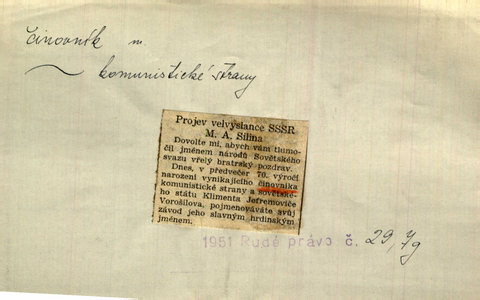 činovník m.
komunistické strany
Projev velvyslance SSSR
M. A. Silina
Dovolte mi, abych vám tlumo-
čil jménem národů Sovětského
svazu vřelý bratrský pozdrav.
Dnes, v předvečer 70. výročí
narození vynikajícího činovníka
komunistické strany a sovětské-
ho státu Klimenta Jefremoviče
Vorošilova, pojmenováváte svůj
závod jeho slavným hrdinským
jménem.
1951 Rudé právo č. 29,/9